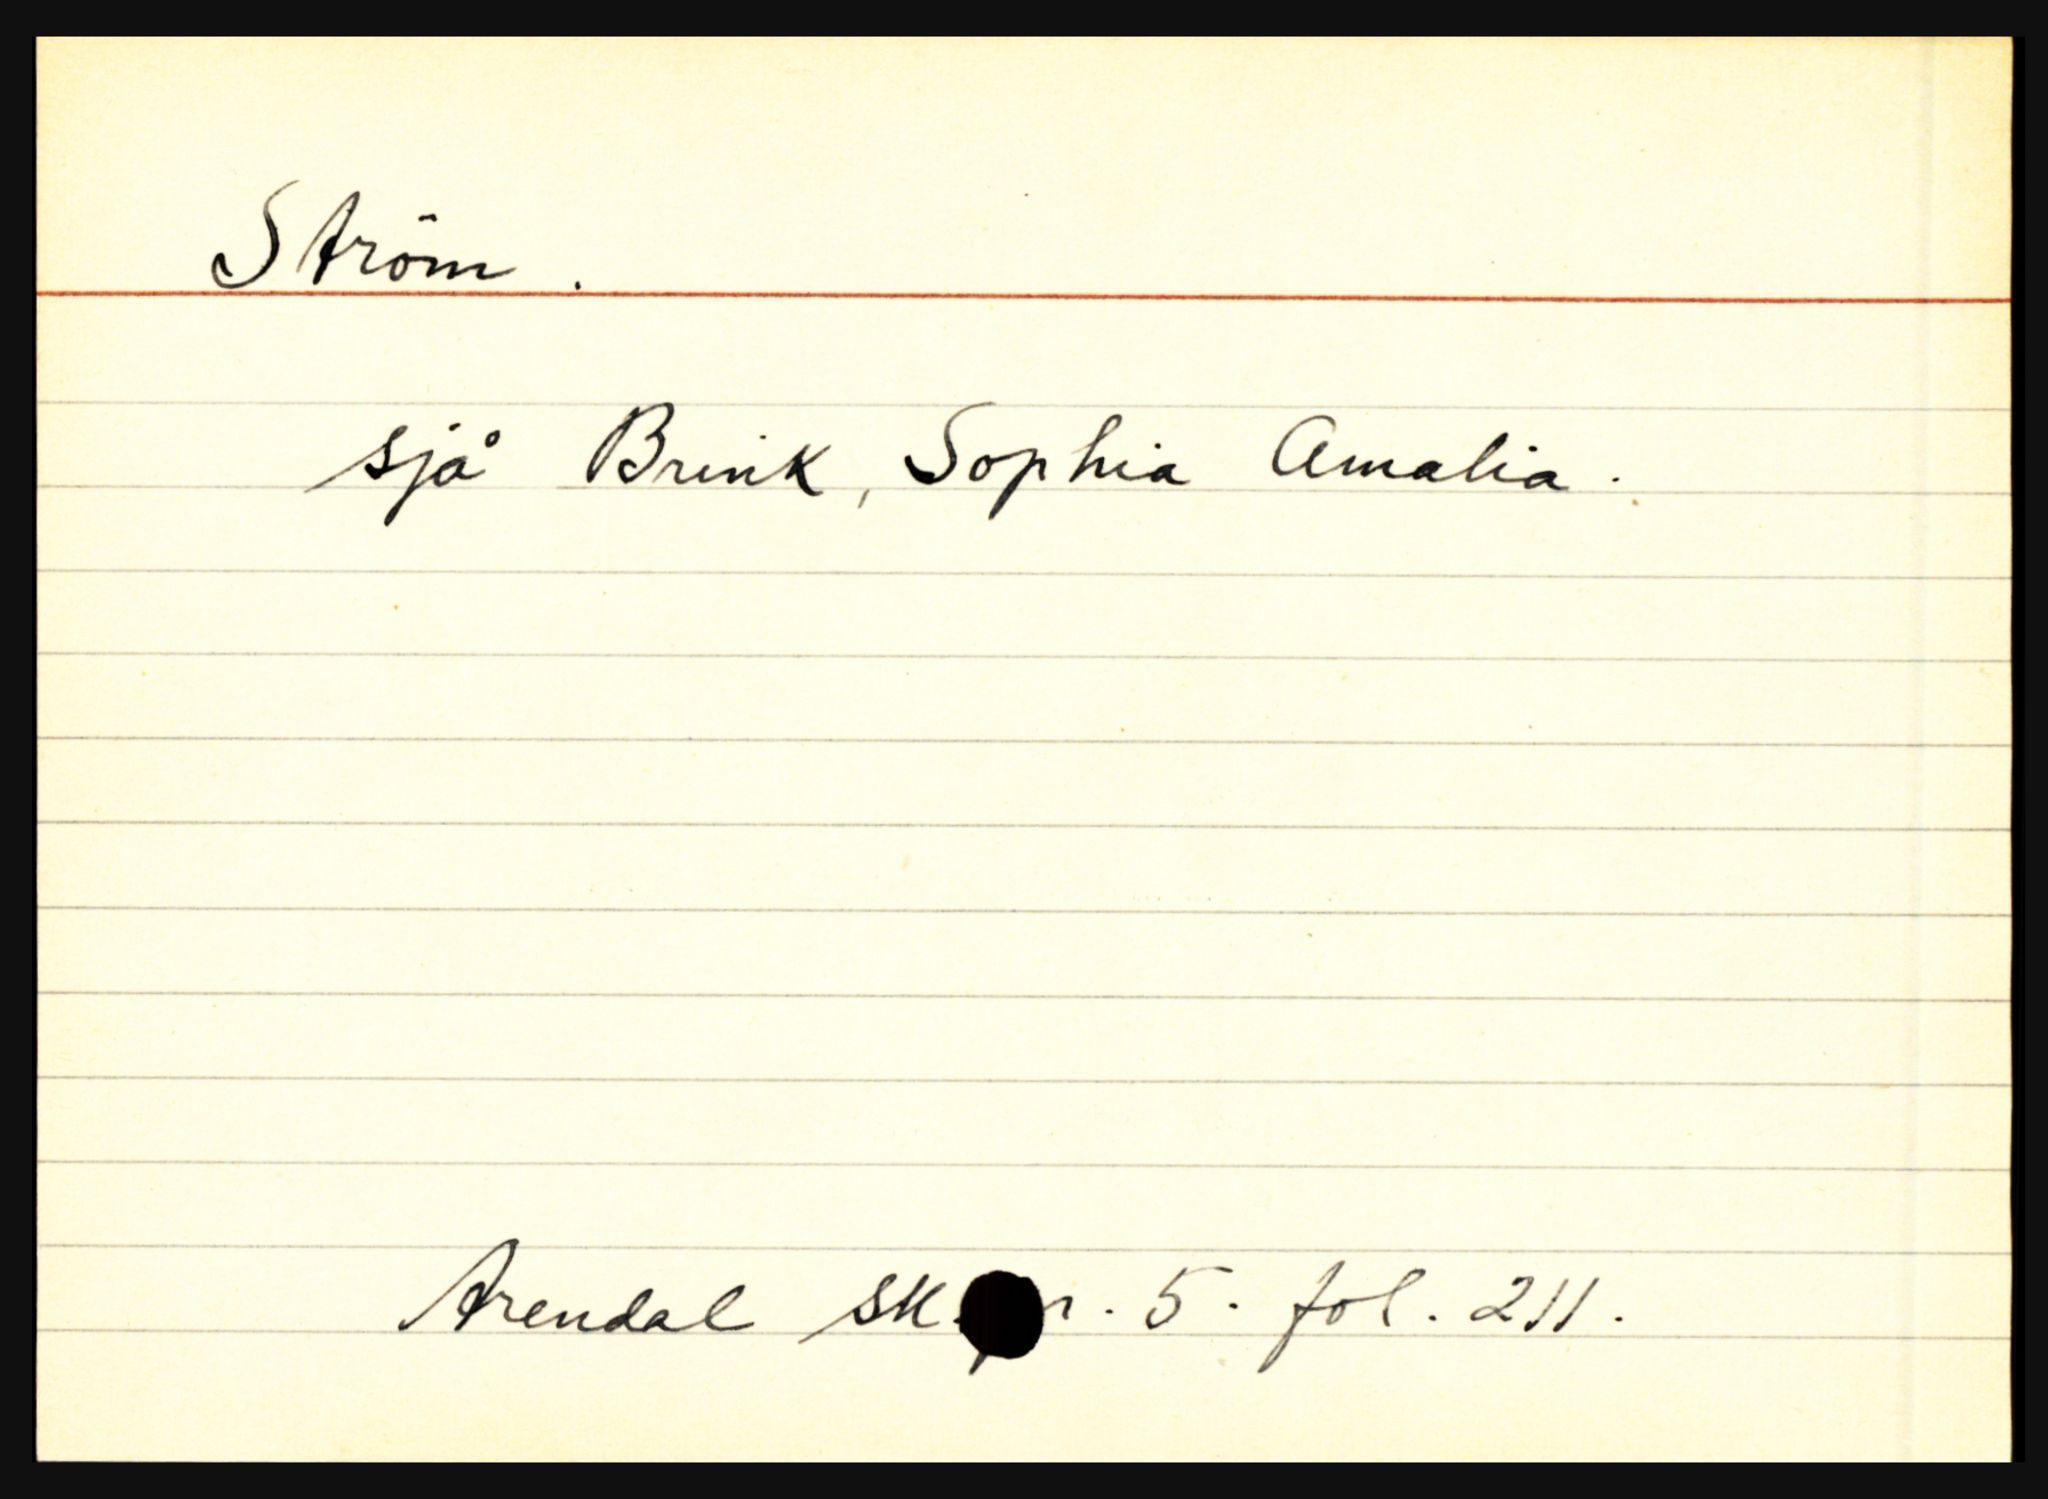 Ström.
sjå Brink, Sophia Amalia.
Arendal sk. pr. 5. fol. 211.